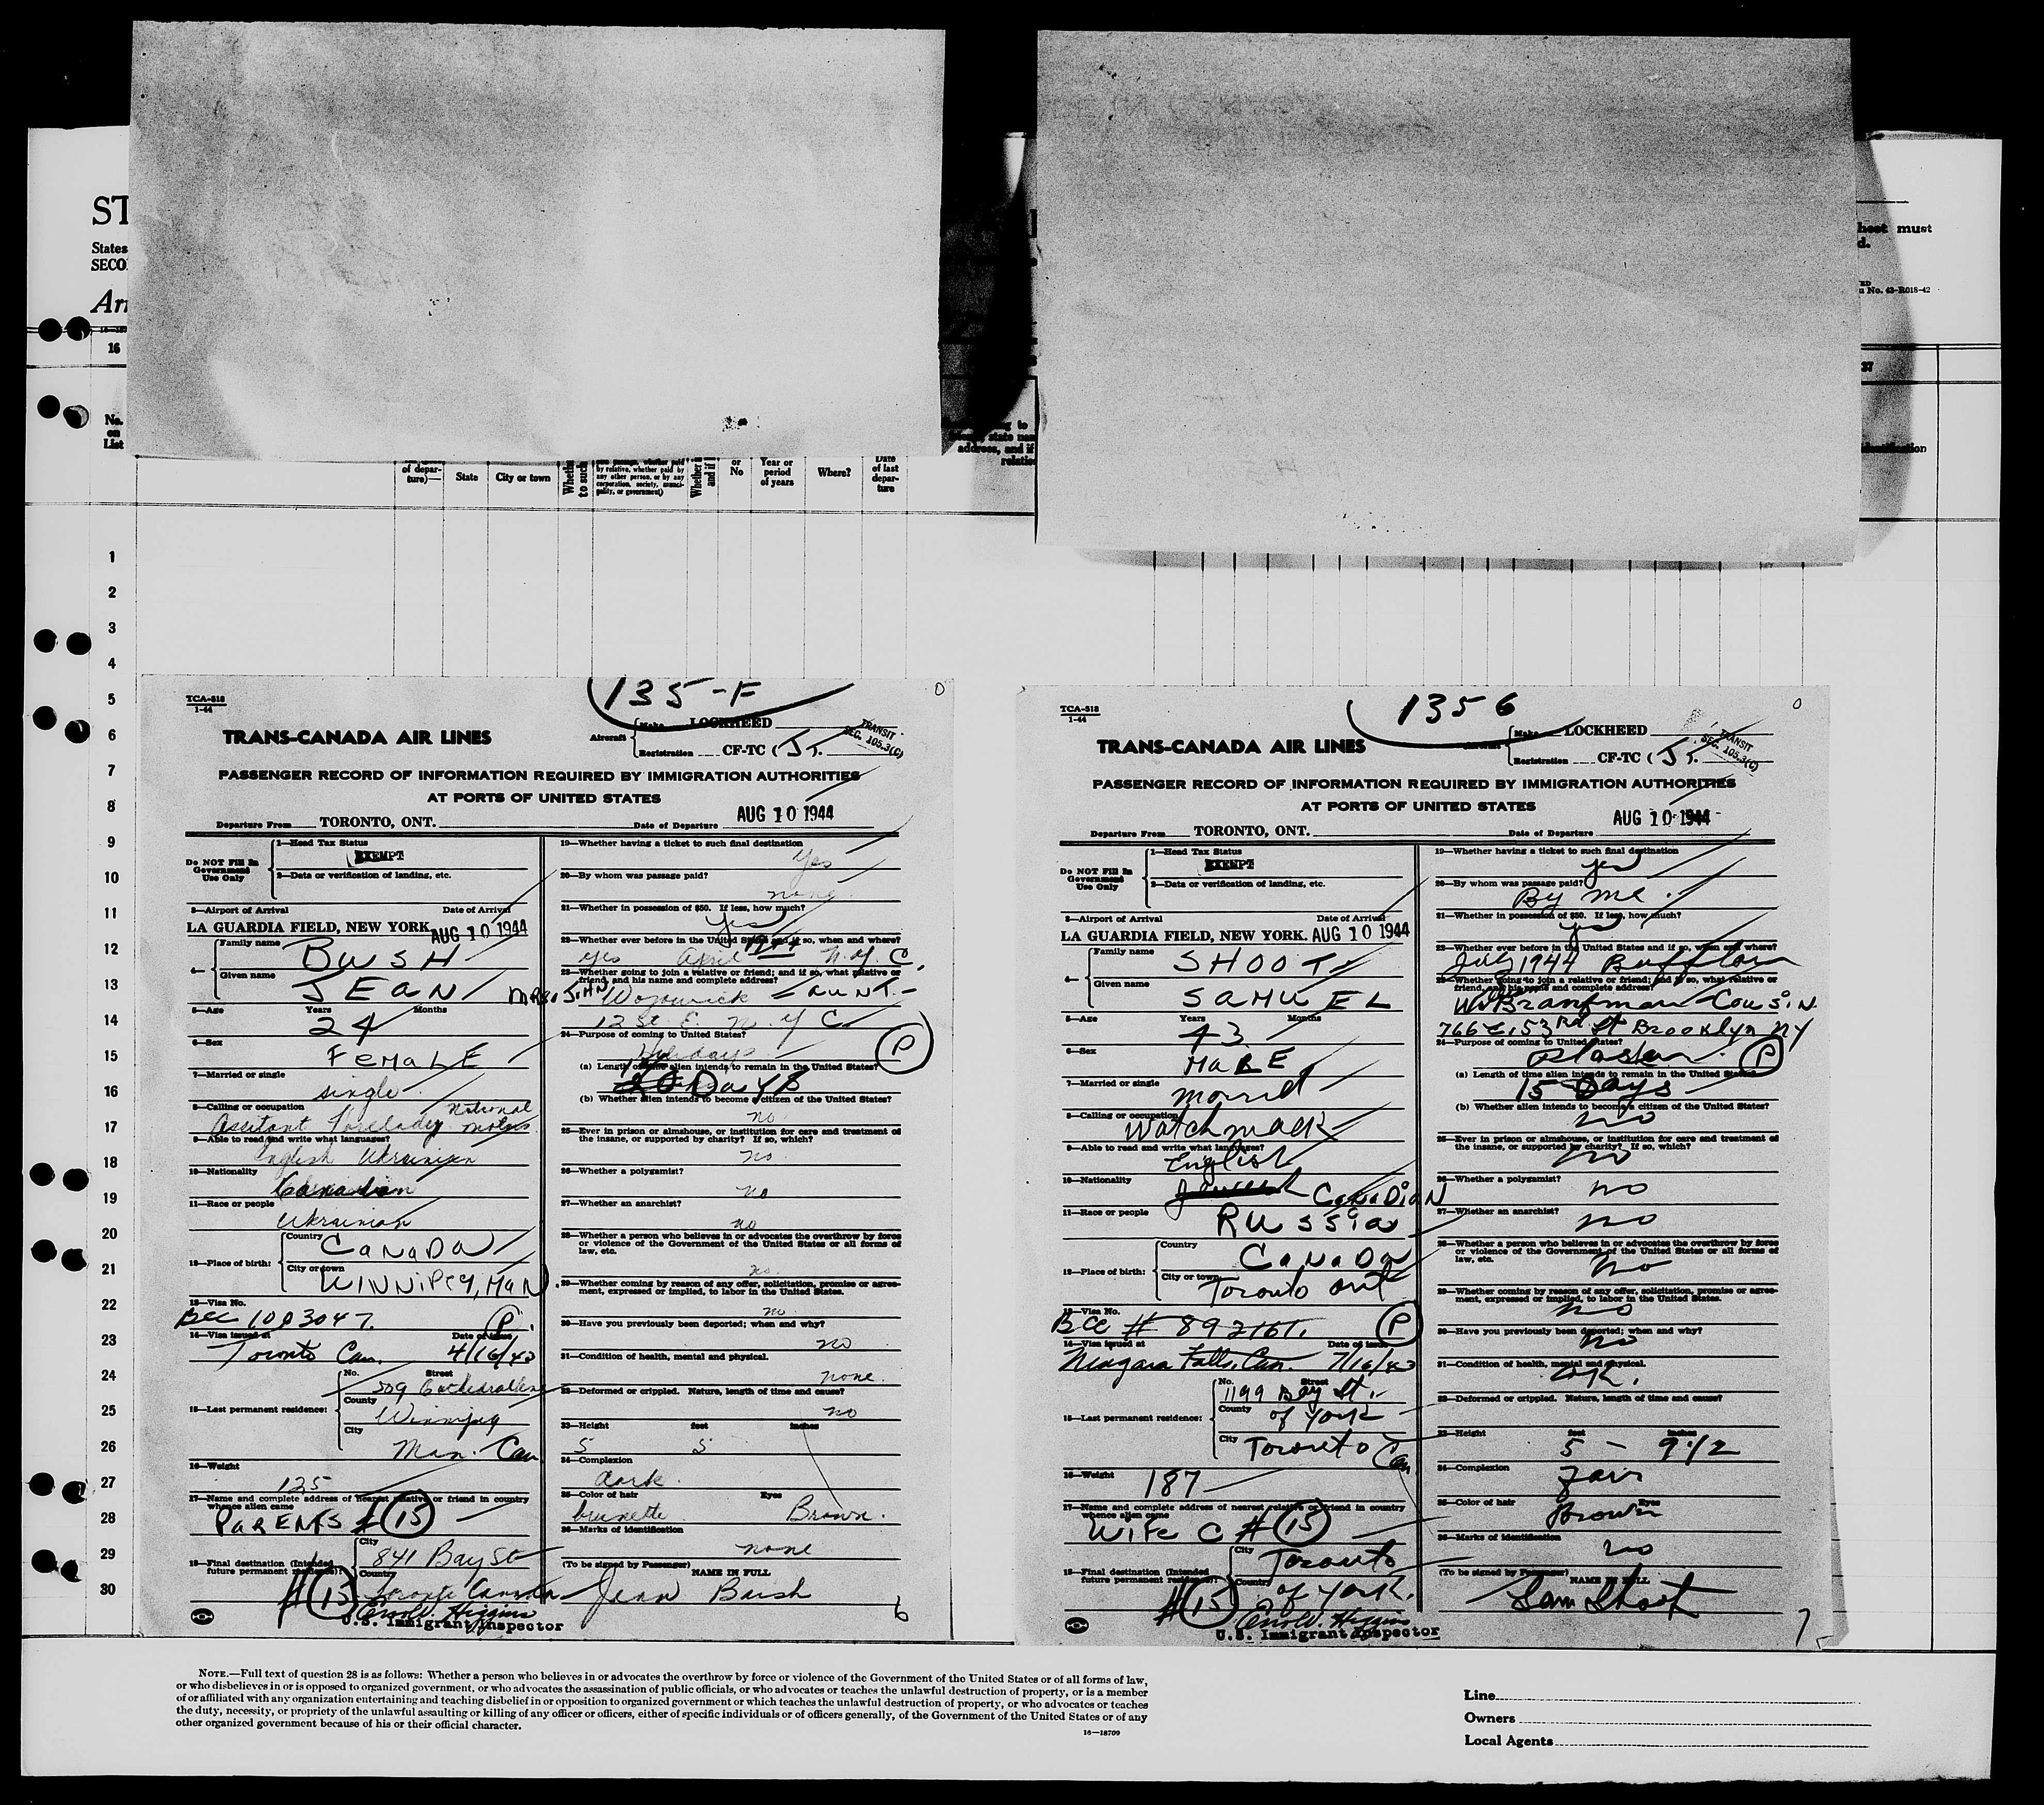 ST
States
SECO
Arr
16
No.
on
List
of depar-
ture)—
State
City or town
by relative, whether paid by
any other person, or by any
corporation, society, munici-
pality, or government)
or
No
Year or
period
of years
Where?
Date
of last
depar-
ture
address, and if
heet must
d.
No. 43-R018-42
37
1
2
3
4
5
6
7
8
9
10
11
12
13
14
15
16
17
18
19
20
21
22
23
24
25
26
27
28
29
30
135-F
TCA-518
1-44
TRANS-CANADA AIR LINES
Aircraft
Make LOCKHEED
Registration CF-TC (JT.
TRANSIT
SEC. 105.3(C)
PASSENGER RECORD OF INFORMATION REQUIRED BY IMMIGRATION AUTHORITIES
AT PORTS OF UNITED STATES
AUG 10 1944
Departure From TORONTO, ONT. Date of Departure
Do NOT Fill In
Government
Use Only
1—Head Tax Status
EXEMPT
2—Data or verification of landing, etc.
3—Airport of Arrival Date of Arrival
LA GUARDIA FIELD, NEW YORK. AUG 10 1944
4— Family name BUSH
Given name JEAN
5—Age Years Months
24
6—Sex
FEMALE
7—Married or single
single
8—Calling or occupation National
Assitant Forelady motors
9—Able to read and write what languages?
English Ukrainian
10—Nationality
Canadian
11—Race or people
Ukrainian
12—Place of birth:
Country CANADA
City or town WINNIPEG, MAN.
13—Visa No.
BCC 1003047. P
14—Visa issued at Date of issue
Toronto Can. 4/16/43
15—Last permanent residence:
No. Street
509 Cathedral
County
Winnipeg
City
Man. Can
16—Weight
125
17—Name and complete address of nearest relative or friend in country
whence alien came
PARENTS # 15
18—Final destination (Intended
future permanent residence):
City
841 Bay St
Country
Toronto Canada
# 15
U.S. Immigrant Inspector
19—Whether having a ticket to such final destination
Yes
20—By whom was passage paid?
none
21—Whether in possession of $50. If less, how much?
Yes
22—Whether ever before in the United States and if so, when and where?
yes April 1944 N.Y.C.
23—Whether going to join a relative or friend; and if so, what relative or
friend, and his name and complete address?
MRS. JOHN - AUNT -
12 St. E. N.Y.C.
24—Purpose of coming to United States?
Holidays P
(a) Length of time alien intends to remain in the United States?
Days
(b) Whether alien intends to become a citizen of the United States?
no
25—Ever in prison or almshouse, or institution for care and treatment of
the insane, or supported by charity? If so, which?
no
26—Whether a polygamist?
no
27—Whether an anarchist?
no
28—Whether a person who believes in or advocates the overthrow by force
or violence of the Government of the United States or all forms of
law, etc.
no
29—Whether coming by reason of any offer, solicitation, promise or agree-
ment, expressed or implied, to labor in the United States.
no
30—Have you previously been deported; when and why?
no
31—Condition of health, mental and physical.
none.
32—Deformed or crippled. Nature, length of time and cause?
no
33—Height feet inches
5 5
34—Complexion
dark.
35—Color of hair Eyes
brunette Brown.
36—Marks of identification
none
(To be signed by Passenger) NAME IN FULL
Jean Bush
6
1356
TCA-518
1-44
TRANS-CANADA AIR LINES
Aircraft
Make LOCKHEED
Registration CF-TC (JT.
TRANSIT
SEC. 105.3(C)
PASSENGER RECORD OF INFORMATION REQUIRED BY IMMIGRATION AUTHORITIES
AT PORTS OF UNITED STATES
AUG 10 1944
Departure From TORONTO, ONT. Date of Departure
Do NOT Fill In
Government
Use Only
1—Head Tax Status
EXEMPT
2—Data or verification of landing, etc.
3—Airport of Arrival Date of Arrival
LA GUARDIA FIELD, NEW YORK. AUG 10 1944
4— Family name SHOOT
Given name SAMUEL
5—Age Years Months
43
6—Sex
MALE
7—Married or single
Morred
8—Calling or occupation
Watchmack
9—Able to read and write what languages?
English
10—Nationality
CANADIAN
11—Race or people
RUSSIA
12—Place of birth:
Country CANADA
City or town Toronto Ont
13—Visa No.
BCC # 892161. P
14—Visa issued at Date of issue
Niagara Falls, Can. 7/16/43
15—Last permanent residence:
No. Street
1199 Bay St.
County of York
City Toronto Can
16—Weight
187
17—Name and complete address of nearest relative or friend in country
whence alien came
Wife C # 15
18—Final destination (Intended
future permanent residence):
City
Toronto
Country of York.
# 15
U.S. Immigrant Inspector
19—Whether having a ticket to such final destination
yes
20—By whom was passage paid?
By me.
21—Whether in possession of $50. If less, how much?
yes
22—Whether ever before in the United States and if so, when and where?
July 1944 Buffalow
23—Whether going to join a relative or friend; and if so, what relative or
friend, and his name and complete address?
Wm Branfman Cousin.
766 E. 53rd St Brooklyn NY
24—Purpose of coming to United States?
P
(a) Length of time alien intends to remain in the United States?
15 Days
(b) Whether alien intends to become a citizen of the United States?
no
25—Ever in prison or almshouse, or institution for care and treatment of
the insane, or supported by charity? If so, which?
no
26—Whether a polygamist?
no
27—Whether an anarchist?
no
28—Whether a person who believes in or advocates the overthrow by force
or violence of the Government of the United States or all forms of
law, etc.
no
29—Whether coming by reason of any offer, solicitation, promise or agree-
ment, expressed or implied, to labor in the United States.
no
30—Have you previously been deported; when and why?
no
31—Condition of health, mental and physical.
OK.
32—Deformed or crippled. Nature, length of time and cause?
33—Height feet inches
5 - 9 1/2
34—Complexion
Fair
35—Color of hair Eyes
Brown
36—Marks of identification
no
(To be signed by Passenger) NAME IN FULL
Sam Shoot
7
NOTE.—Full text of question 28 is as follows: Whether a person who believes in or advocates the overthrow by force or violence of the Government of the United States or of all forms of law,
or who disbelieves in or is opposed to organized government, or who advocates the assassination of public officials, or who advocates or teaches the unlawful destruction of property, or is a member
of or affiliated with any organization entertaining and teaching disbelief in or opposition to organized government or which teaches the unlawful destruction of property, or who advocates or teaches
the duty, necessity, or propriety of the unlawful assaulting or killing of any officer or officers, either of specific individuals or of officers generally, of the Government of the United States or of any
other organized government because of his or their official character.
16—18709
Line
Owners
Local Agents